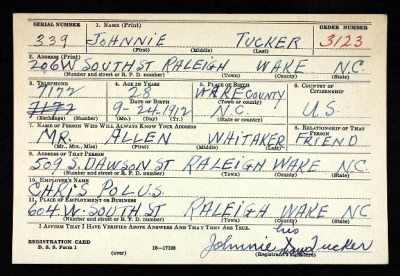 SERIAL NUMBER 1. NAME (Print) ORDER NUMBER
339 JOHNNIE TUCKER 3123
(First) (Middle) (Last)
2. ADDRESS (Print)
206 W SOUTH ST RALEIGH WAKE NC.
(Number and street or R. F. D. number) (Town) (County) (State)
3. TELEPHONE 4. AGE IN YEARS 5. PLACE OF BIRTH 6. COUNTRY OF CITIZENSHIP
7172 28 WAKE COUNTY
DATE OF BIRTH (Town or county)
9-24-1912 N.C. U.S.
(Exchange) (Number) (Mo.) (Day) (Yr.) (State or country)
7. NAME OF PERSON WHO WILL ALWAYS KNOW YOUR ADDRESS 8. RELATIONSHIP OF THAT PERSON
MR. ALLEN WHITAKER FRIEND
(Mr., Mrs., Miss) (First) (Middle) (Last)
9. ADDRESS OF THAT PERSON
509 S. DAWSON ST RALEIGH WAKE NC
(Number and street or R. F. D. number) (Town) (County) (State)
10. EMPLOYER'S NAME
CHRIS POLUS.
11. PLACE OF EMPLOYMENT OR BUSINESS
604 W. SOUTH ST RALEIGH WAKE NC
(Number and street or R. F. D. number) (Town) (County) (State)
I AFFIRM THAT I HAVE VERIFIED ABOVE ANSWERS AND THAT THEY ARE TRUE.
his
REGISTRATION CARD Johnnie Tucker
D. S. S. Form 1 (over) (Registrant's signature)